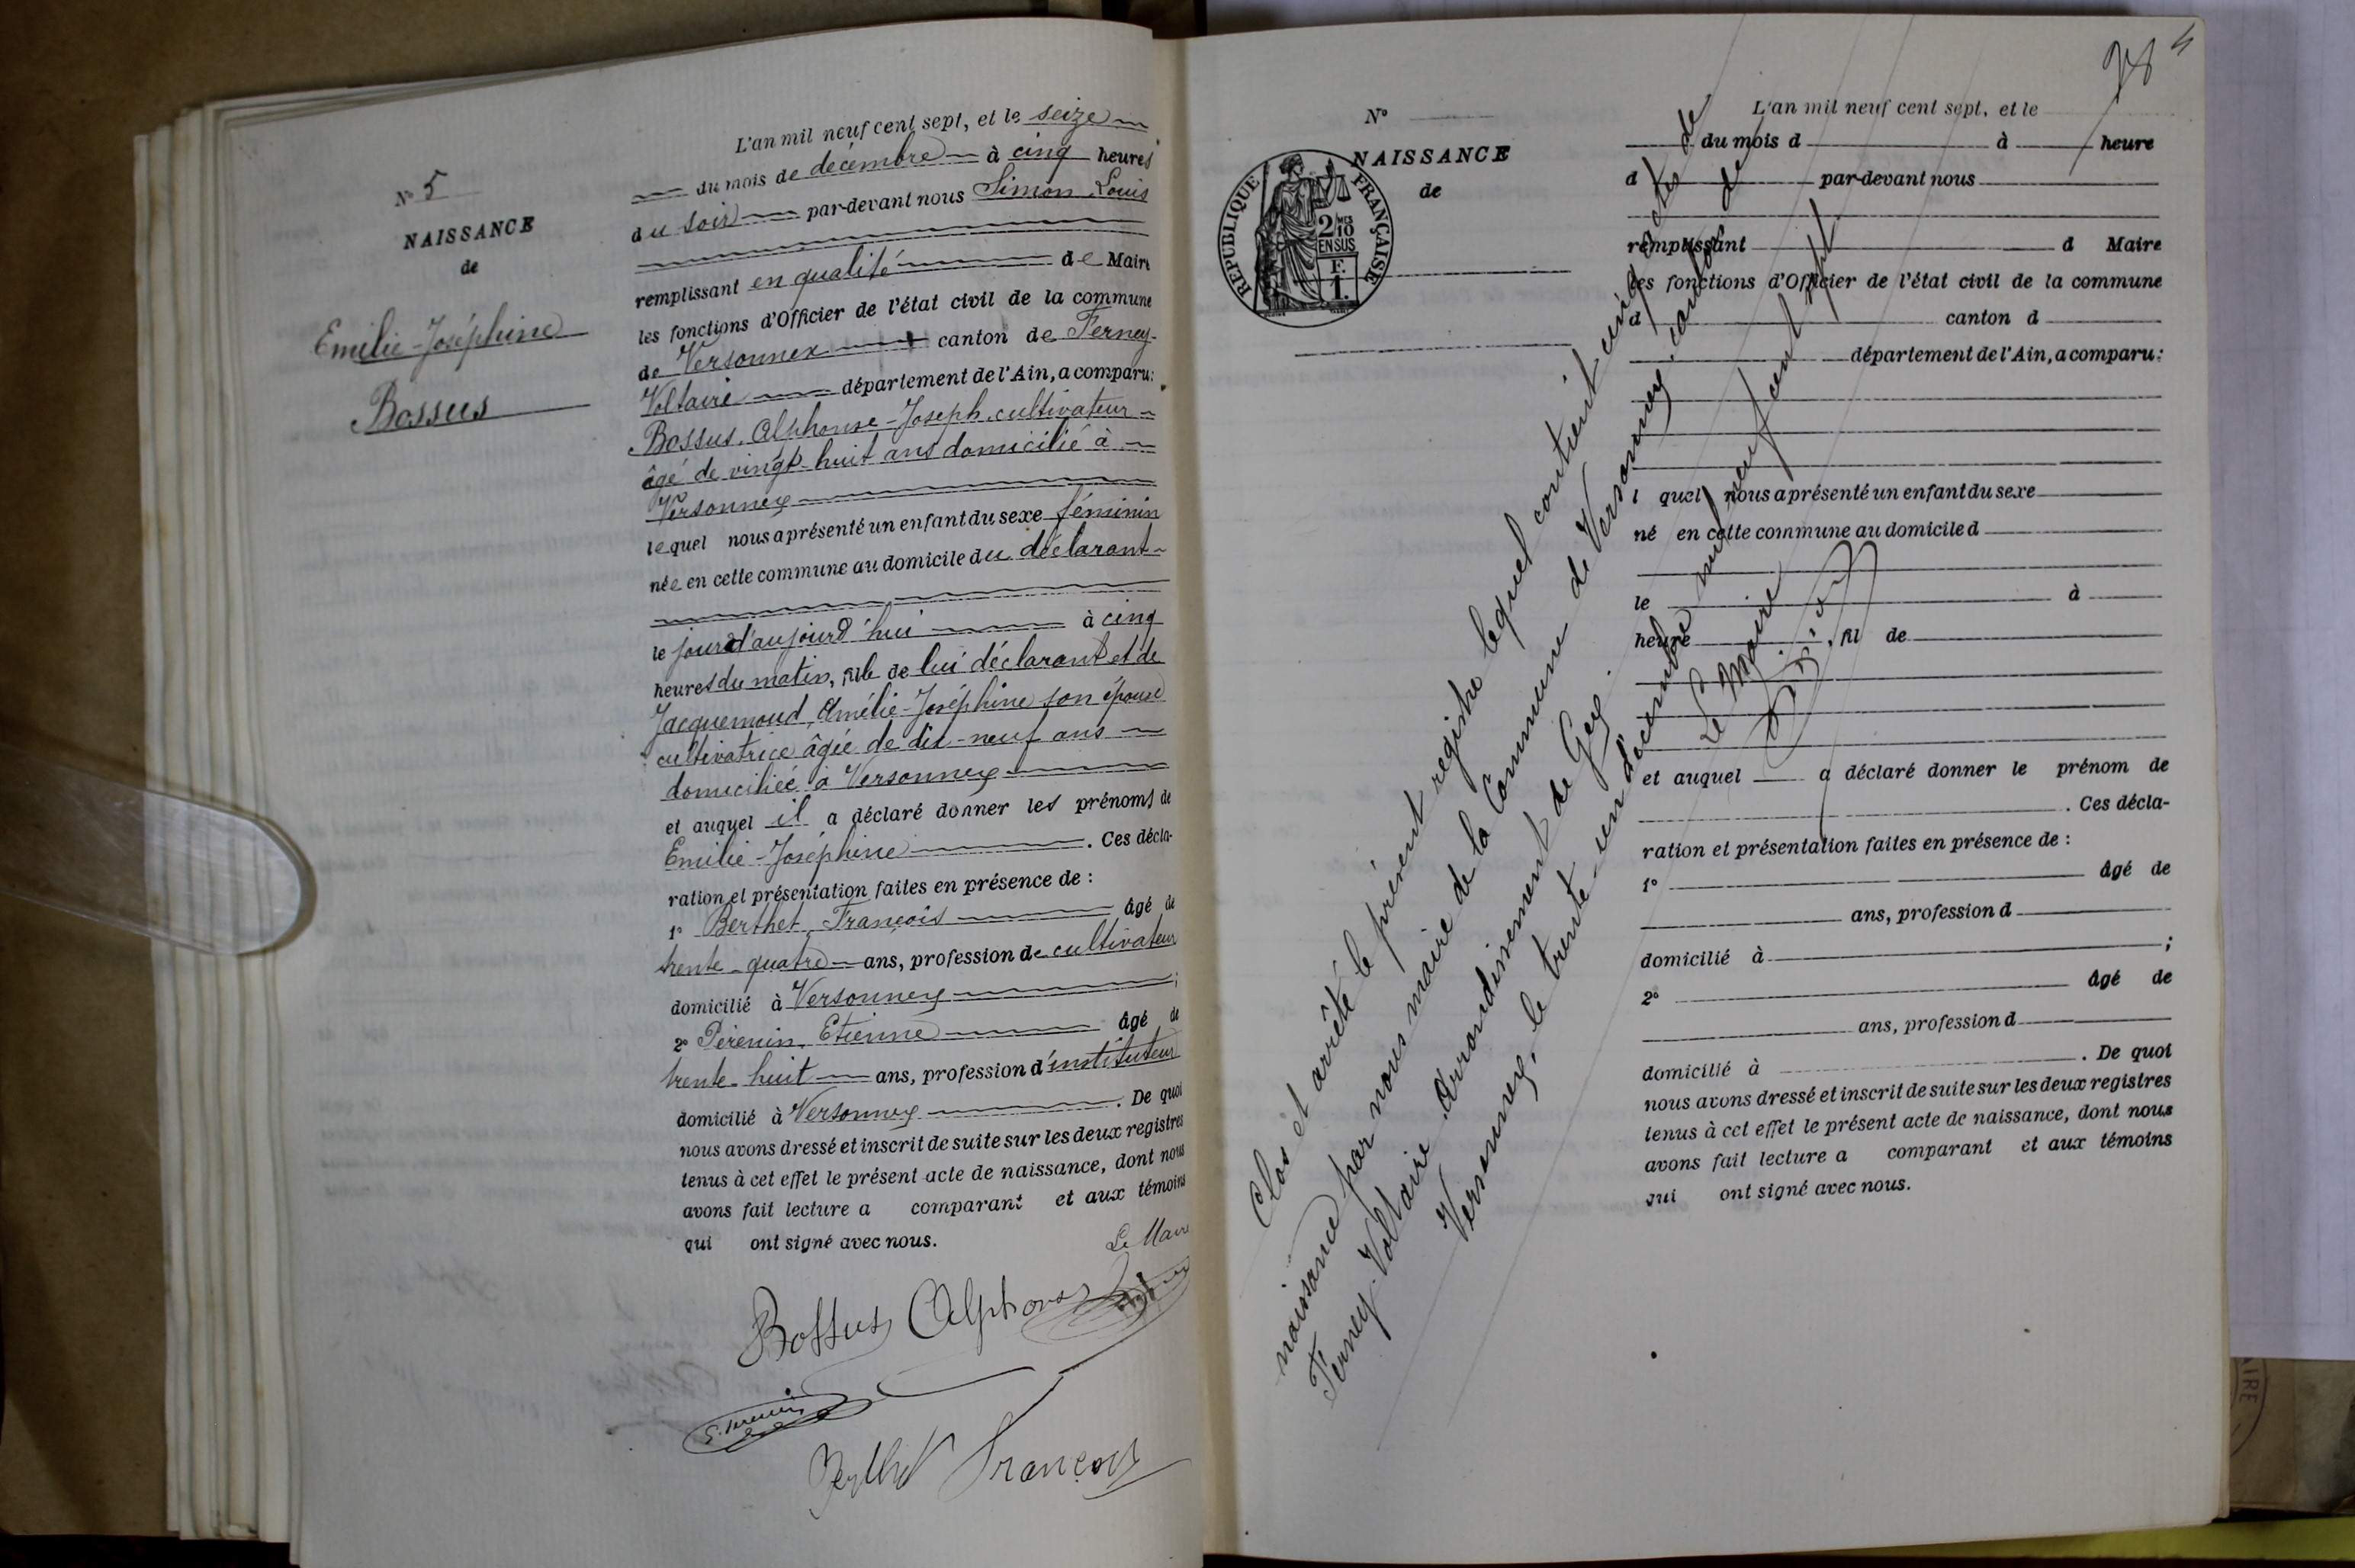 N° 5
NAISSANCE
de
Emilie-Joséphine
Bossus
L'an mil neuf cent sept, et le seize
du mois de décembre à cinq heures
du soir par-devant nous Simon Louis
remplissant en qualité de Maire
les fonctions d'Officier de l'état civil de la commune
de Versonnex canton de Ferney-
Voltaire département de l'Ain, a comparu:
Bossus Alphonse-Joseph cultivateur
âgé de vingt-huit ans domicilié à
Versonnex
lequel nous a présenté un enfant du sexe féminin
née en cette commune au domicile du déclarant
le jour d'aujourd'hui à cinq
heures du matin, fille de lui déclarant et de
Jacquemoud, Amélie-Joséphine son épouse
cultivatrice âgée de dix-neuf ans
domiciliée à Versonnex
et auquel il a déclaré donner les prénoms de
Emilie-Joséphine. Ces décla-
ration et présentation faites en présence de :
1° Berthet, François âgé de
trente-quatre ans, profession de cultivateur
domicilié à Versonnex ;
2° Perenin, Etienne âgé de
trente-huit ans, profession d'instituteur
domicilié à Versonnex. De quoi
nous avons dressé et inscrit de suite sur les deux registres
tenus à cet effet le présent acte de naissance, dont nous
avons fait lecture a comparant et aux témoins
qui ont signé avec nous.
Le Maire
Bossus Alphonse
Berthet François
N°
NAISSANCE
de
RÉPUBLIQUE FRANÇAISE
2/10 EN SUS
F. 1.
L'an mil neuf cent sept, et le
du mois d à heure
d par-devant nous
remplissant d Maire
les fonctions d'Officier de l'état civil de la commune
d canton d
département de l'Ain, a comparu:
l quel nous a présenté un enfant du sexe
né en cette commune au domicile d
le à
heure , fil de
et auquel a déclaré donner le prénom de
. Ces décla-
ration et présentation faites en présence de :
1° âgé de
ans, profession d
domicilié à ;
2° âgé de
ans, profession d
domicilié à . De quoi
nous avons dressé et inscrit de suite sur les deux registres
tenus à cet effet le présent acte de naissance, dont nous
avons fait lecture a comparant et aux témoins
qui ont signé avec nous.
Clos et arrêté le présent registre lequel contient cinq actes de
naissance par nous maire de la Commune de Versonnex, canton de
Ferney-Voltaire Arrondissement de Gex.
Versonnex, le trente-un décembre mil neuf cent sept
Le Maire